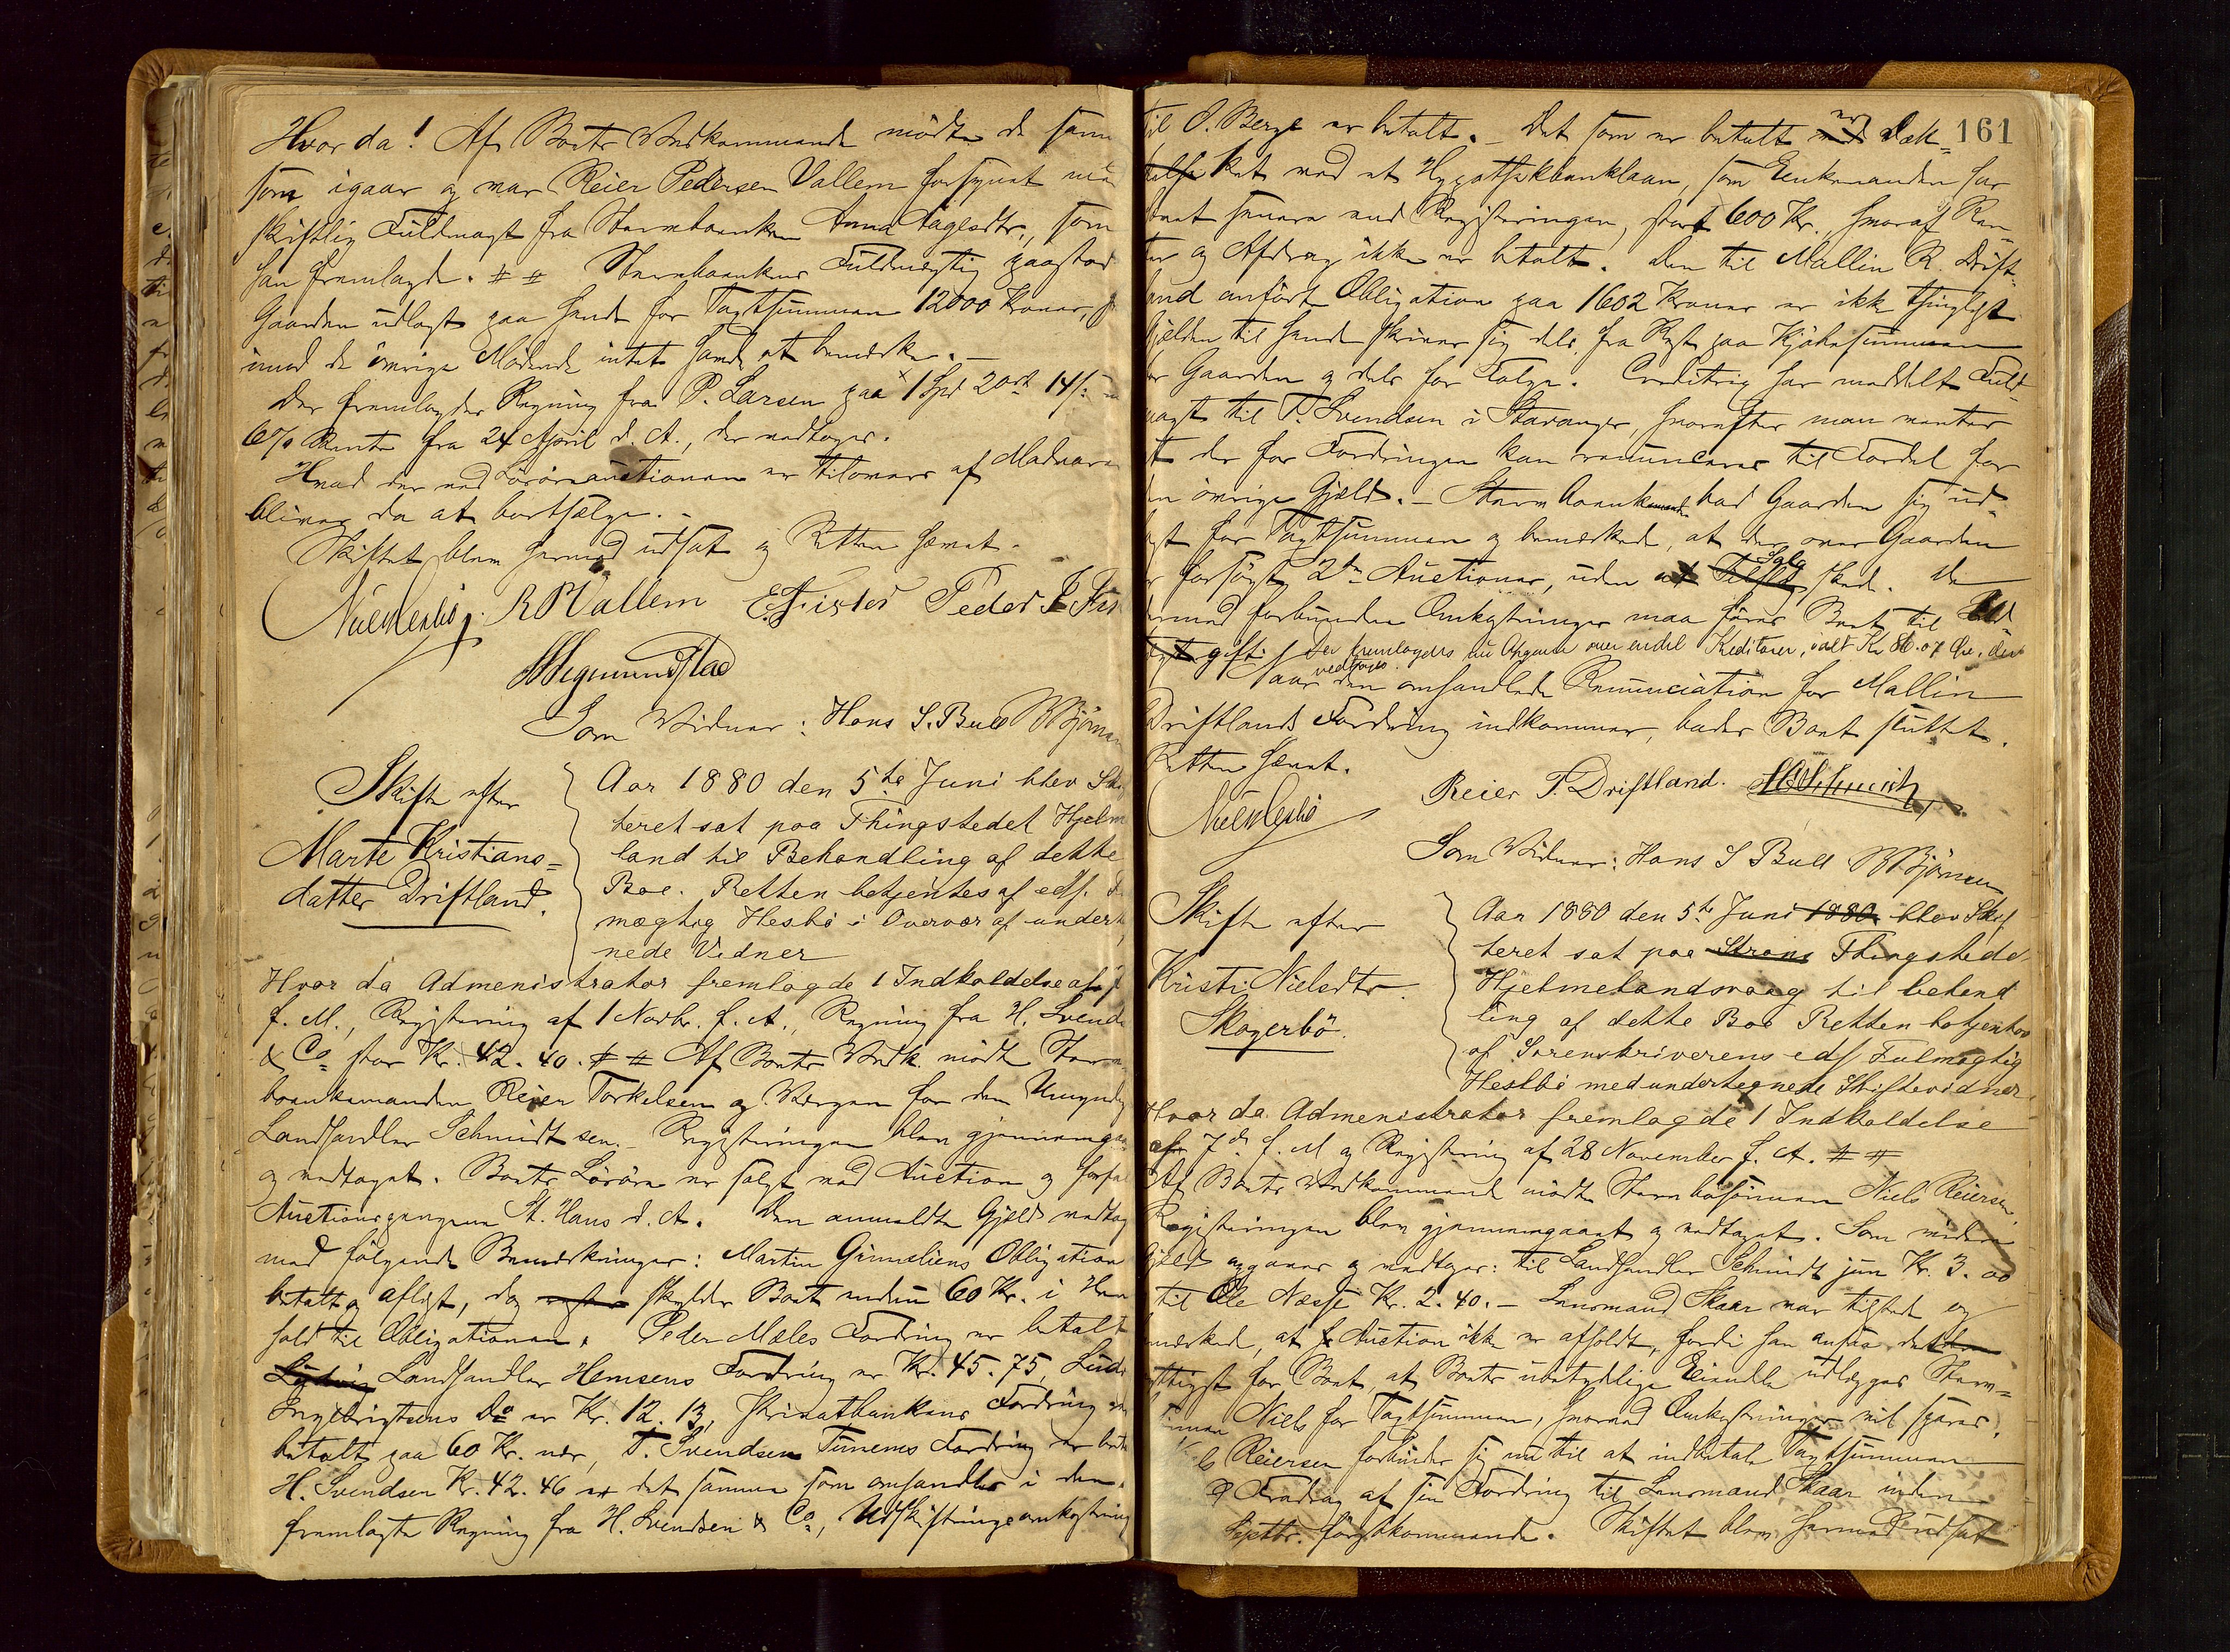 Hvor da! Af Boets Vedkommende mødte de samme
som igaar og var Reier Pedersen Vallem forsynet med
skriftlig Fuldmagt fra Stervboenken Anna Aagesdtr., som
han fremlagde. # # Stervboenkens Fuldmægtig paastod
Gaarden udlagt paa hende for Taxtsummen 12000 Kroner,
imod de øvrige Mødende intet havde at bemærke. —
Der fremlagdes Regning fra P. Larsen paa 1 Spd 2 ort 14 s.
6% Rente fra 24 April d. A., der vedtoges.
Hvad der ved Løsøreauctionen er tilovers af Madvarer
bliver da at bortsælge. –
Skiftet blev hermed udsat og Retten hævet.
R P Vallem E. Fister Peder
Sigmundstad
Som Vidner: Hans S. Bull B Bjørnsen
Skifte efter
Marte Kristians=
datter Driftland.
Aar 1880 den 5te Juni blev Skif
teret sat paa Thingstedet Hjelm
land til Behandling af dette
Boe. Retten betjentes af edsf.
mægtig Hesbö i Overvær af underteg
nede Vidner
Hvor da Admenistrator fremlagde 1 Indkaldelse af 7
f. M., Registrering af 1 Novbr. f. A., Regning fra H. Svends
& Co stor Kr. 42.40. # # Af Boets Vedk. mødte Sterv
boenkemanden Reier Torkelsen og Vergen for den Umyndige
Landhandler Schmidt sen. – Registreringen blev gjennemgaa
og vedtaget. Boets Løsøre er solgt ved Auction og forfal
Auctionspengene St. Hans d. A. Den anmeldte Gjeld vedtog
med følgende Bemærkninger: Martin Obligation
betalt og aflyst, dog skylder Boet endnu 60 Kr. i Hen
hold til Obligationen. Peder Mæles Fordring er betalt
Ludvig Landhandler Hemsens Fordring er Kr. 45.75, Ludv
Ingebrigtsens Do er Kr. 12.13, Privatbankens Fordring er
betalt paa 60 Kr. nær, T. Svendsen Tunems Fordring er bet
H. Svendsen Kr. 42.46 er det samme som omhandles i den
fremlagte Regning fra H. Svendsen & Co, Udskiftningsomkostning
161
til O. Berge er betalt. – Det som er betalt er dæk=
ket med et Hypothekbanklaan, som Enkemanden har
siden Registreringen, stort 600 Kr., hvoraf Ren
ter og Afdrag ikke er betalt. Den til Mallin R. Drift
land anførte Obligation paa 1602 Kroner er ikke thinglyst
Gjelden til hende skriver sig dels fra Rest paa Kjøbesummen
for Gaarden og dels for Følge. Creditrix har meddelt Fuld
magt til T. Svendsen i Stavanger, hvorefter man venter
at der for Fordringen kan renunceres til Fordel for
den øvrige Gjeld. – Stervboenkemanden bad Gaarden sig ud
lagt for Taxtsummen og bemærkede, at der over Gaarden
er forsøgt 2de Auctioner, uden at Salg skede. De
dermed forbundne Omkostninger maa føres Boet til Ud
gift. Der fremlagdes en Opgave over endel Kreditorer, ialt Kr 86.07 Øre, der
vedtoges.
Naar den omhandlede Renunciation for Mallin
Driftlands Fordring indkommer, bades Boet sluttet.
Retten hævet.
Reier T. Driftland. Schmidt
Som Vidner: Hans S Bull B Bjørnsen
Skifte efter
Kristi Nielsdtr
Skogerbö.
Aar 1880 den 5te Juni 1880 blev Skif
teret sat paa Strans Thingstede
Hjelmelandsvaag til behand
ling af dette Boe Retten betjentes
af Sorenskriverens edsf Fulmægtig
Hesbö med undertegnede Skiftevidner
Hvor da Admenistrator fremlagde 1 Indkaldelse
af 7de f. M og Registrering af 28 November f. A. # #
Af Boets Vedkommende mødte Stervbosønnen Niels Reiersen.
Registreringen blev gjennemgaaet og vedtaget. Som videre
Gjeld opgaves og vedtoges: til Landhandler Schmidt jun Kr. 3.00
til Ole Næsse Kr. 2.40. – Lensmand Skaar var tilstede og
bemærkede, at Auction ikke er afholdt, fordi han ansaa det
nyttigst for Boet, at Boets ubetydelige Eiendele udlægges Sterv=
sønnen Niels for Taxtsummen, hvorved Omkostninger vil spares.
Reiersen forbinder sig nu til at indbetale Taxtsummen
Fradrag af sin Fordring til Lensmand Skaar inden
Septbr. førstkommende. Skiftet blev hermed udsat